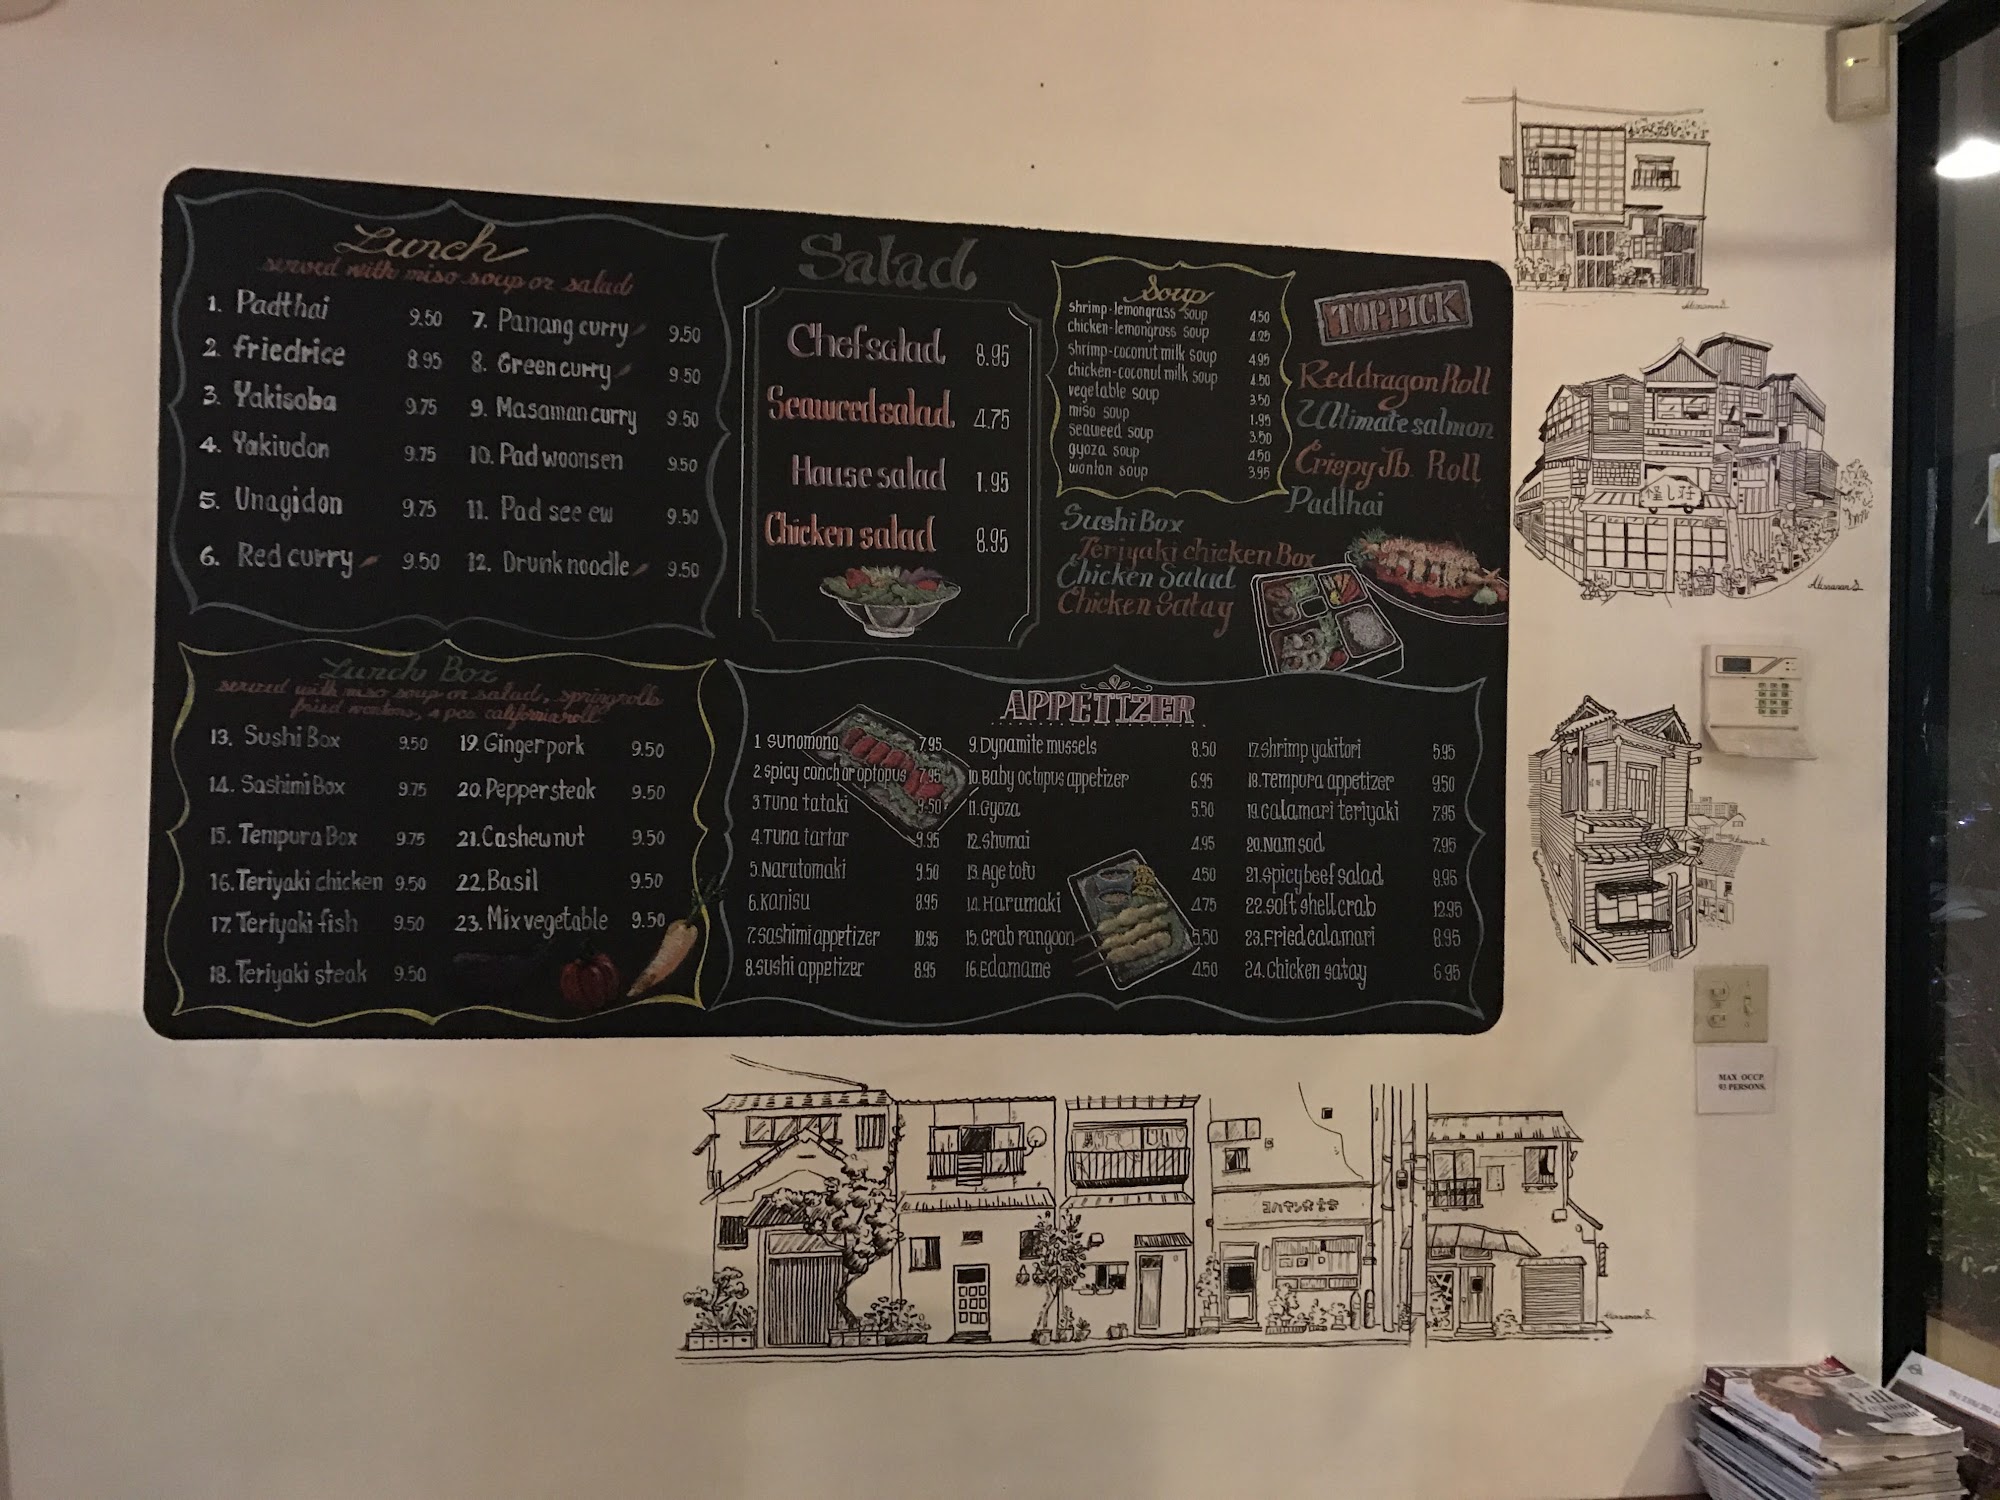 Lunch
served with miso soup or salad
1. Padthai 9.50
2. Friedrice 8.95
3. Yakisoba 9.75
4. Yakiudon 9.75
5. Unagidon 9.75
6. Red curry 9.50
7. Panang curry 9.50
8. Green curry 9.50
9. Masaman curry 9.50
10. Pad woonsen 9.50
11. Pad see ew 9.50
12. Drunk noodle 9.50
Salad
Chef salad 8.95
Seaweed salad 4.75
House salad 1.95
Chicken salad 8.95
Soup
shrimp-lemongrass soup 4.50
chicken-lemongrass soup 4.25
shrimp-coconut milk soup 4.95
chicken-coconut milk soup 4.50
vegetable soup 3.50
miso soup 1.95
seaweed soup 3.50
gyoza soup 4.50
wonton soup 3.95
TOP PICK
Red dragon Roll
Ultimate salmon
Crispy Jb. Roll
Padthai
Sushi Box
Teriyaki chicken Box
Chicken Salad
Chicken Satay
Lunch Box
served with miso soup or salad, springrolls
fried wontons, 4 pcs. california roll
13. Sushi Box 9.50
14. Sashimi Box 9.75
15. Tempura Box 9.75
16. Teriyaki chicken 9.50
17. Teriyaki fish 9.50
18. Teriyaki steak 9.50
19. Ginger pork 9.50
20. Pepper steak 9.50
21. Cashew nut 9.50
22. Basil 9.50
23. Mix vegetable 9.50
APPETIZER
1. Sunomono 7.95
2. Spicy conch or optopus 7.95
3. Tuna tataki 9.50
4. Tuna tartar 9.95
5. Narutomaki 9.50
6. Kanisu 8.95
7. Sashimi appetizer 10.95
8. Sushi appetizer 8.95
9. Dynamite mussels 8.50
10. Baby octopus appetizer 6.95
11. Gyoza 5.50
12. Shumai 4.95
13. Age tofu 4.50
14. Harumaki 4.75
15. Crab rangoon 5.50
16. Edamame 4.50
17. Shrimp yakitori 5.95
18. Tempura appetizer 9.50
19. Calamari teriyaki 7.95
20. Nam sod 7.95
21. Spicy beef salad 8.95
22. Soft shell crab 12.95
23. Fried calamari 8.95
24. Chicken satay 6.95
MAX OCCP.
93 PERSONS.